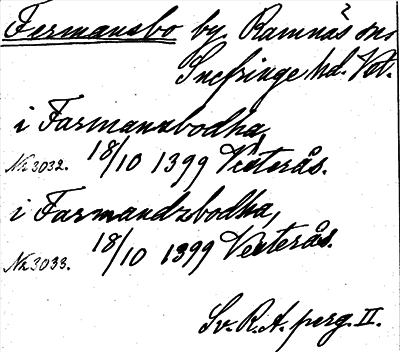 Fermansbo by, Ramnäs sn
Snefringe hd. Vstl.
i Farmansbodha,
Nr 3032. 18/10 1399 Vesterås.
i Farmandzbodha,
Nr 3033. 18/10 1399 Vesterås.
Sv. R.A. perg. II.